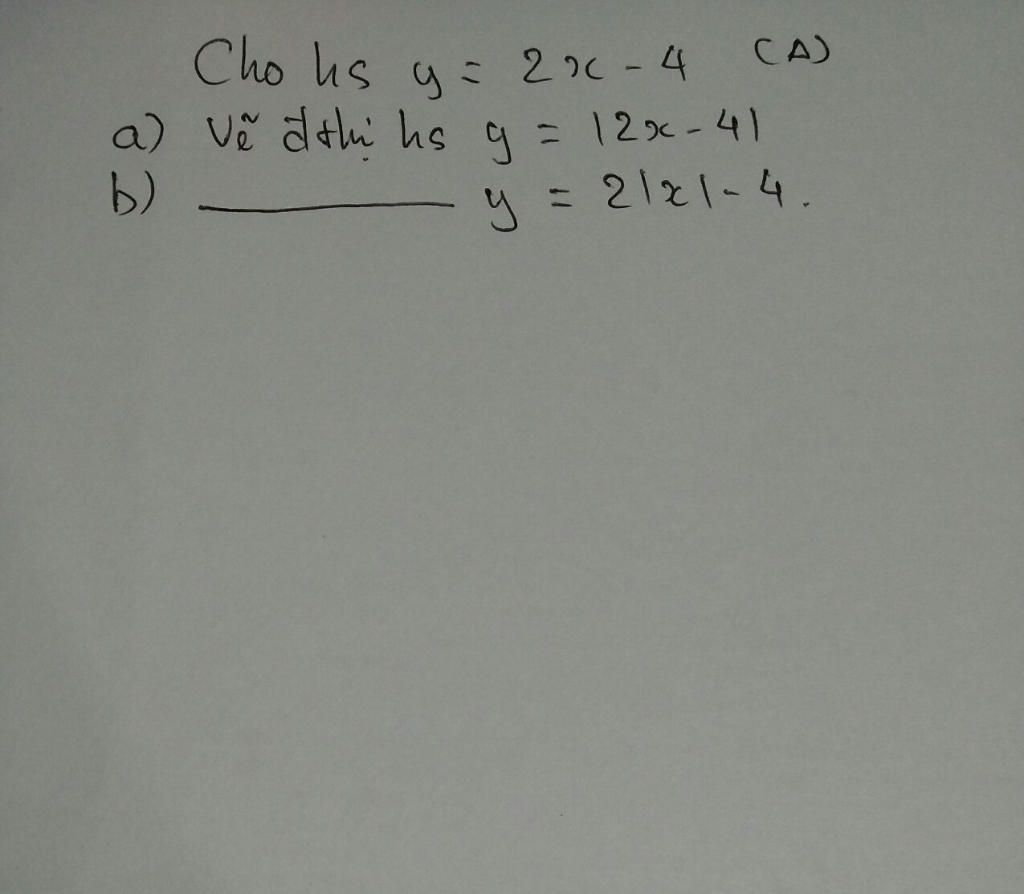 Cho hs y = 2x - 4 (Δ)
a) Vẽ đthị hs y = |2x - 4|
b) ______ y = 2|x| - 4.